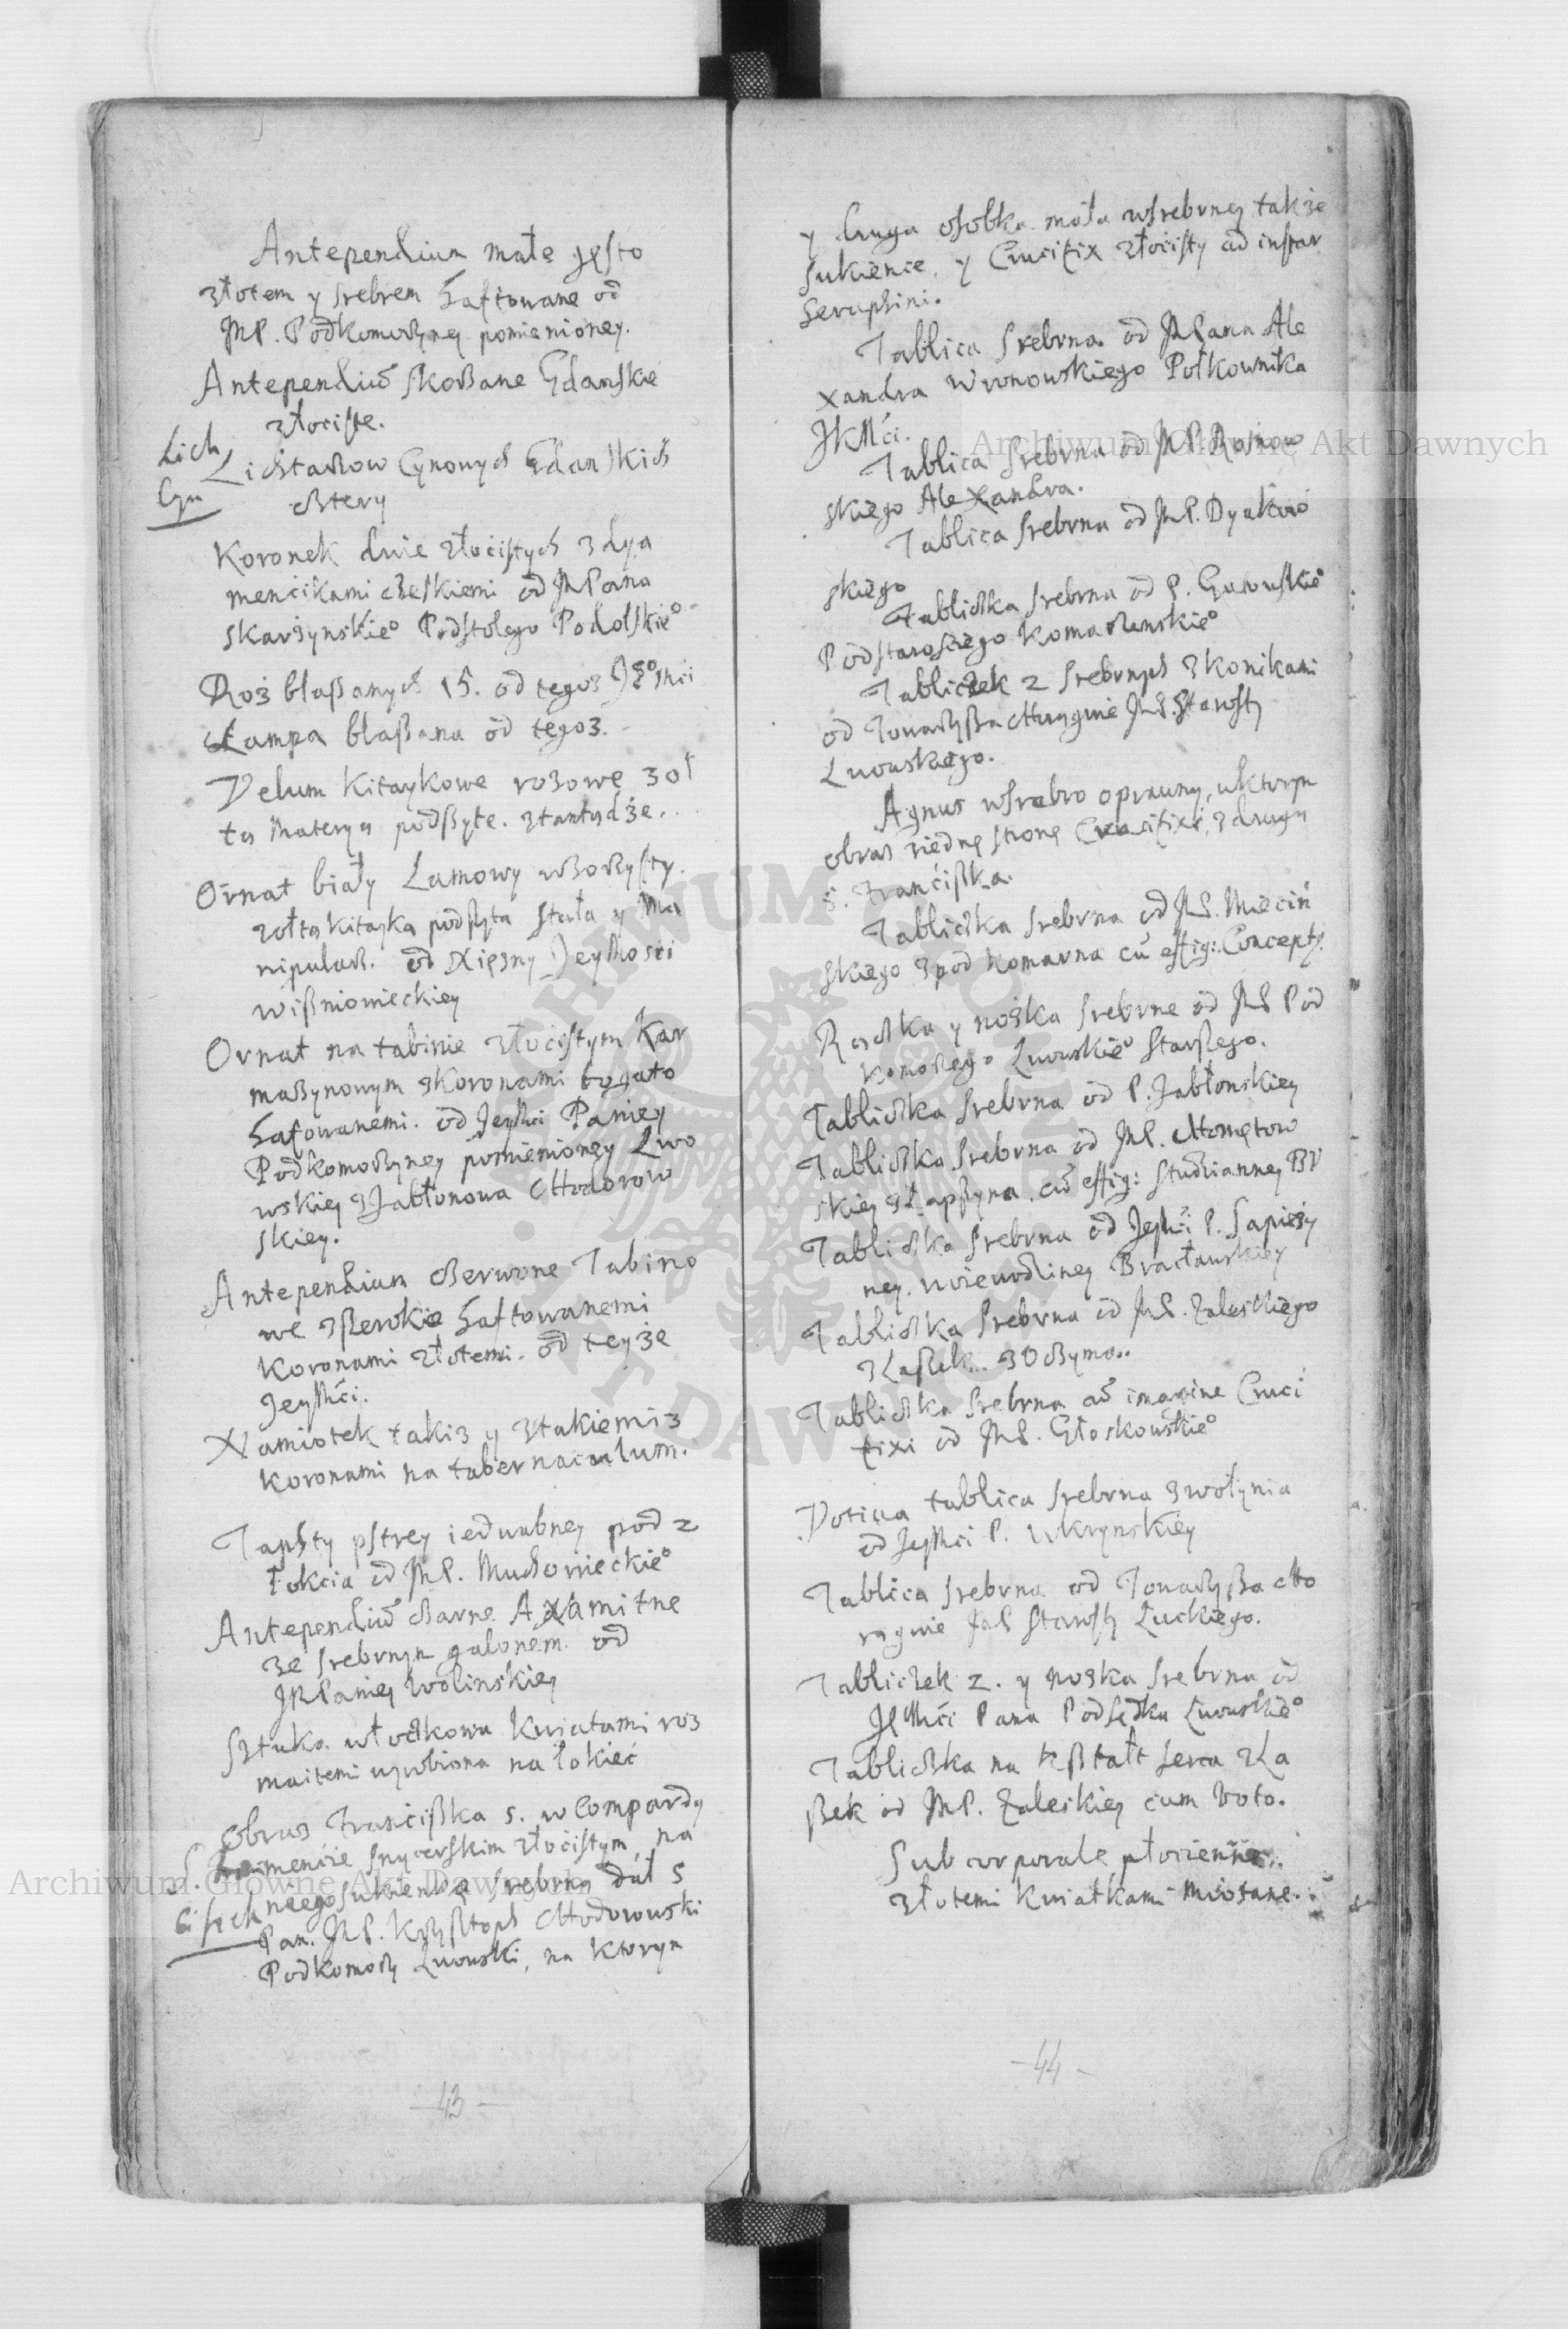 Antependium małe gęsto
złotem y srebrem haftowane od
JMP. Podkomorzyney pomienioney.
Antependiū skorzane Gdanskie
złociste.
Lich
Cyn
Lichtarzow Cynowych Gdanskich
cztery
Koronek dwie złocistych z dya
mencikami czeskiemi od JMPana
Skarzynskie° Podstolego Podolskie°
Roż blaszanych 15. od tegoz
Lampa blaszana od tegoz.
Velum Kitaykowe rozowe zoł
tą Materyą podszyte. ztamtądże.
Ornat biały Lamowy wzorzysty.
zołtą kitayką podszyta stuła y Ma
nipularz. od Xięzny Jeymosci
Wiszniowieckiey
Ornat na tabinie złocistym Kar
mazynowym z Koronami bogato
hafowanemi. od Jeymci Paniey
Podkomorzyney pomienioney Lwo
wskiey z Jabłonowa Chodorow
skiey.
Antependium czerwone Tabino
we z szerokie haftowanemi
Koronami złotemi. od teyże
Jeymći.
Namiotek takiz y z takiemiz
Koronami na tabernaculum.
Taphty pstrey iedwabney pod 2
łokcia od JMP. Muchowieckie°
Antependiū czarne Axamitne
ze srebrnym galonem. od
JMPaniey Wolinskiey
Sztuka włoczkowa Kwiatami roz
maitemi wyrobiona na łokieć
Obraz Franciszka S. w Compardy
mencie snycerskim złocistym, na
niego sukienkę srebrną dał S
Pan. JMP. Krzysztoph Chodorowski
Podkomorzy Lwowski, na Ktorym
43
y druga osobka mała w srebrney także
sukience, y Crucifix złocisty ad instar
Seraphini.
Tablica srebrna od JMPana Ale
xandra Wronowskiego Połkownika
JKMći.
Tablica srebrna od JMP. Rosnow
skiego Alexandra.
Tablica srebrna od JMP. Dyakow
skiego
Tabliczka srebrna od P. Gurowskie°
Podstarosciego Komarzanskie°
Tabliczek 2 srebrnych z konikami
od Towarzysza Chorągwie JMP. Starosty
Lwowskiego.
Agnus w srebro oprawny, w ktorym
obraz z iedne stronę Crucifixi, z drugą
S. Franciszka.
Tabliczka srebrna od JMP. Mieciń
skiego z pod Komarna cū effig: Concept.
Rączka y nożka srebrne od JMP Pod
komorzego Lwowskie° Starszego.
Tabliczka srebrna od P. Jabłonskiey
Tabliczka srebrna od JMP. Mometow
skiey z Łapszyna. cū effig: Studzianney BV
Tabliczka srebrna od Jeymći P. Sapieży
ney. Woiewodziney Bracławskiey
Tabliczka srebrna od JMP. Zaleskiego
z Laszek
Tabliczka srebrna cū imagine Cruci
fixi od JMP. Głoskowskie°
Votiua tablica srebrna z Wołynia
od Jeymci P. Ukrynskiey
Tablica srebrna od Towarzysza Cho
rągwie JMP Starosty Łuckiego.
Tabliczek 2. y nozka srebrna od
JEMći Pana Podsędka Lwowskie°
Tabliczka na kształt serca z La
szek od JMP. Zaleskiey cum Voto.
Sub corporale płocienne
złotemi kwiatkami
44
Archiwum Główne Akt Dawnych
Archiwum Główne Akt Dawnych
ARCHIWUM GŁÓWNE AKT DAWNYCH